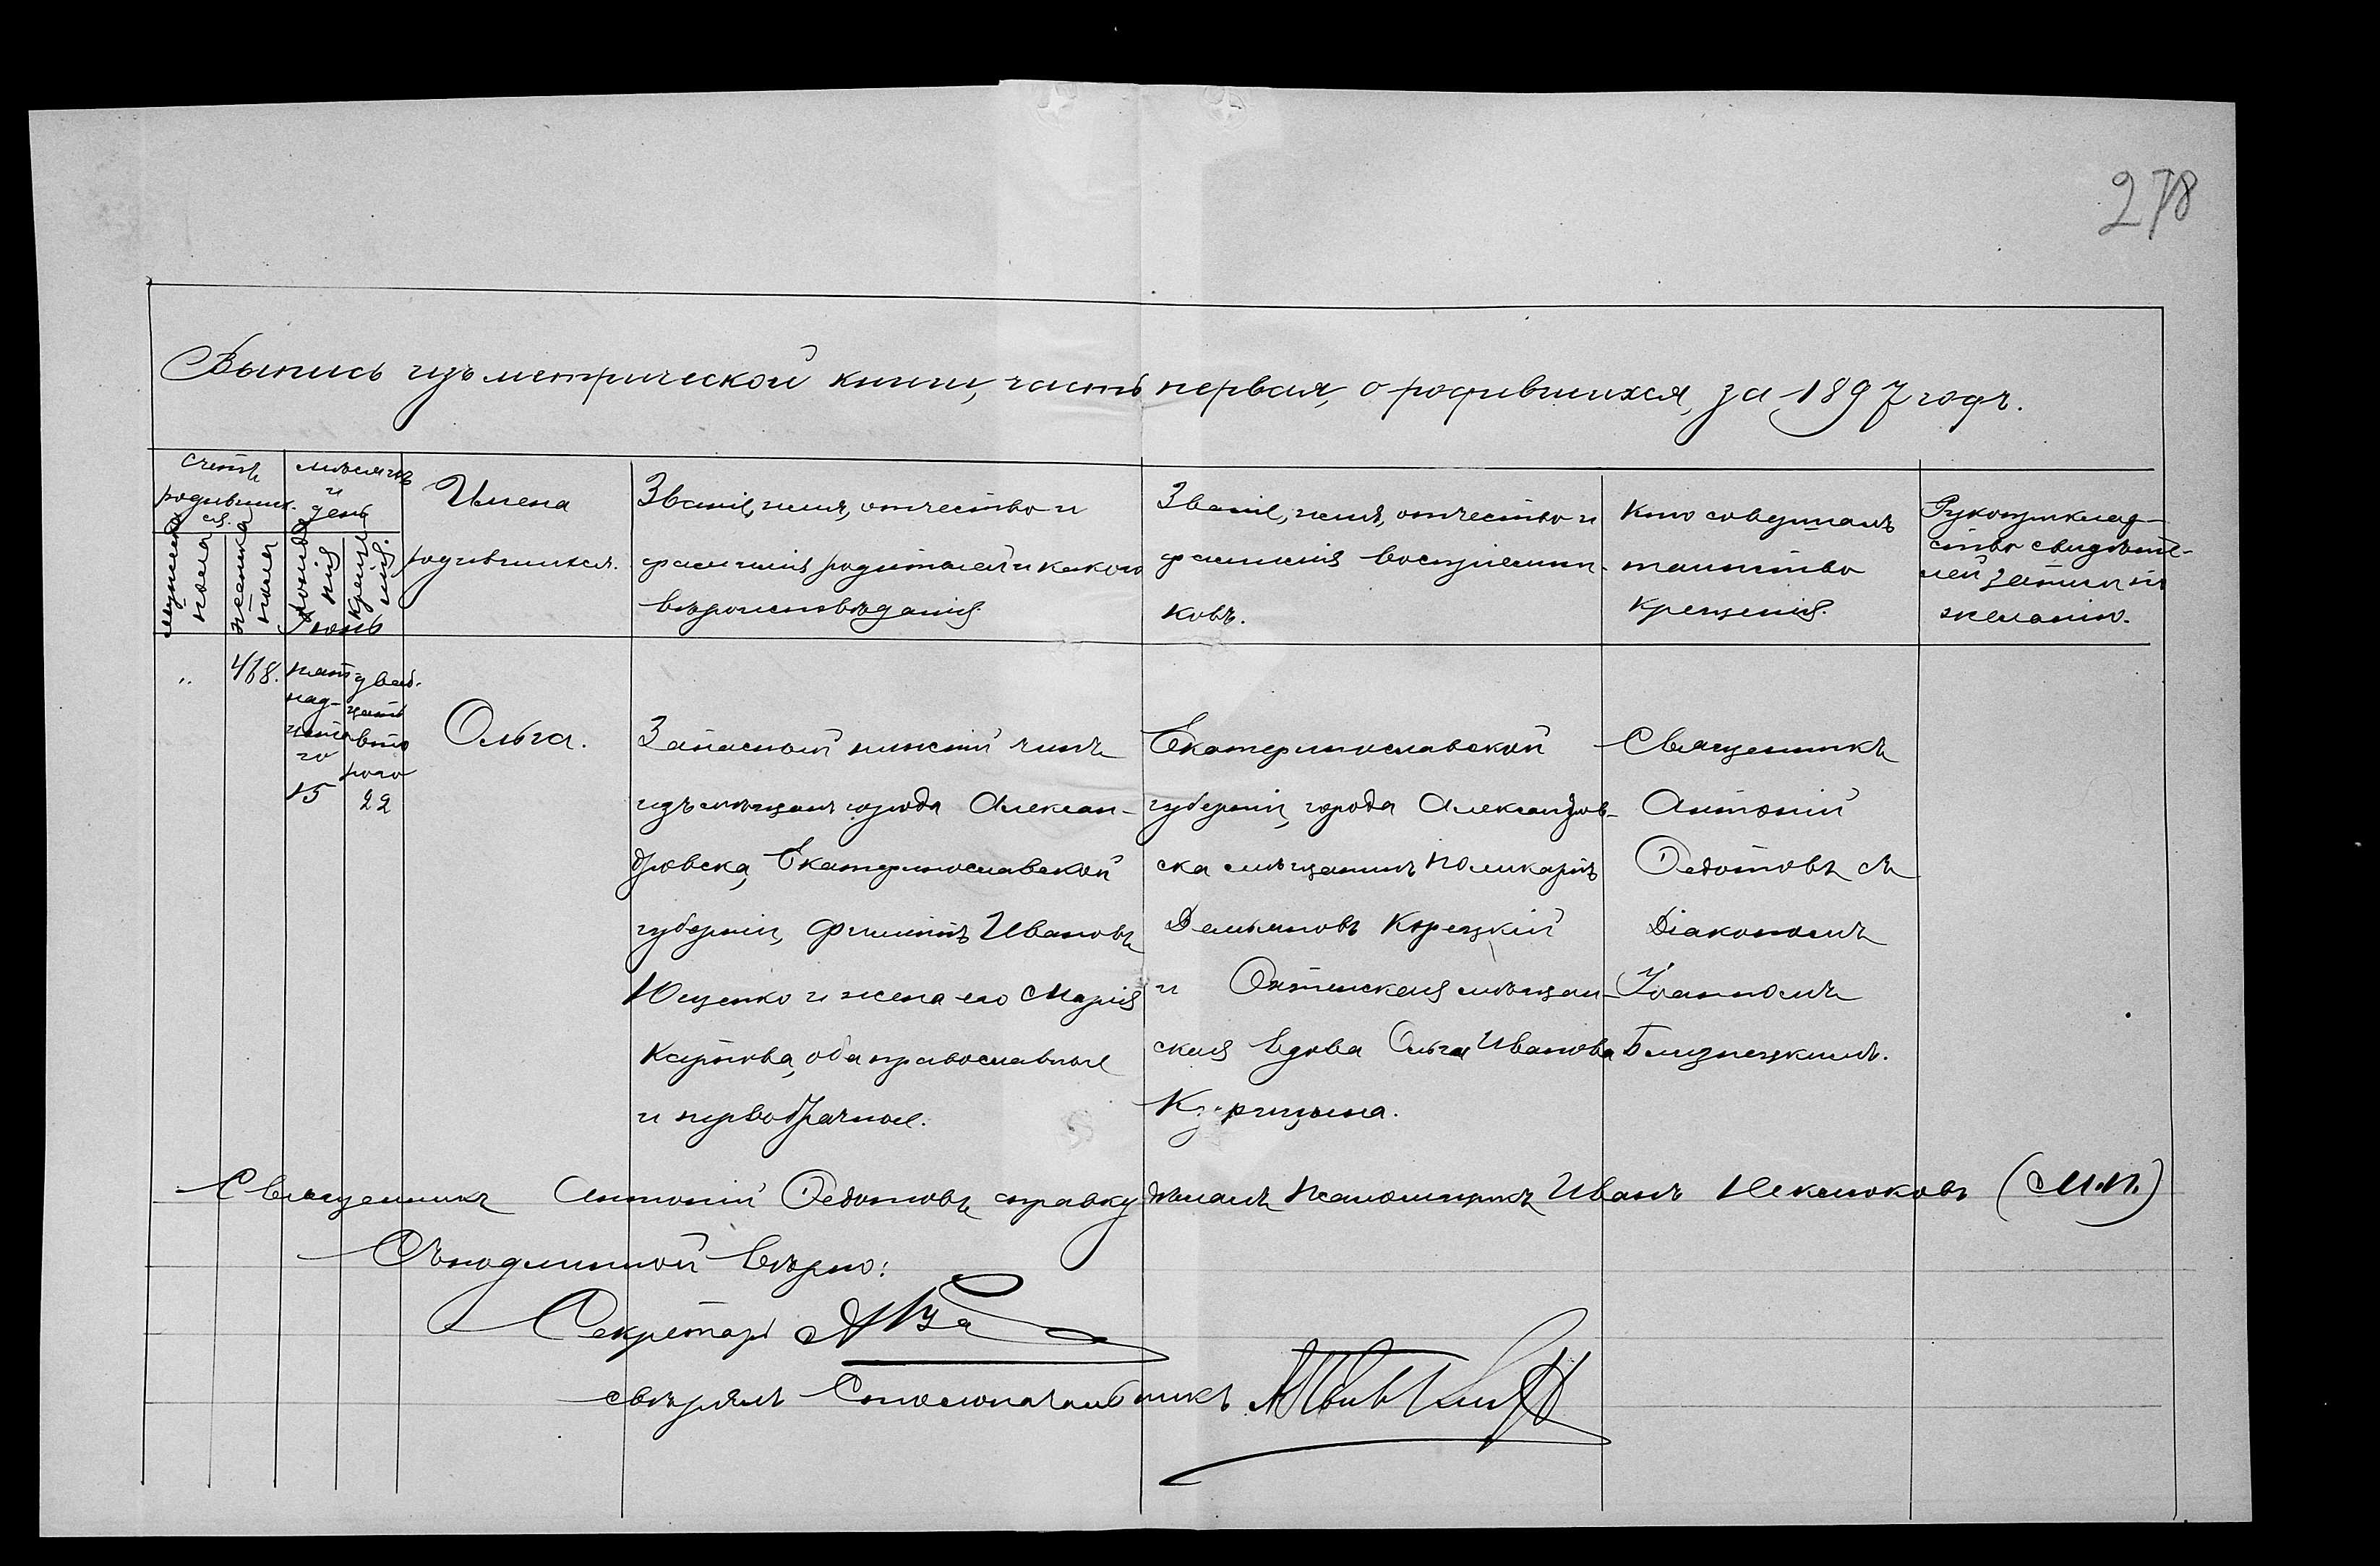 278
Выпись изъ метрической книги, часть первая, о родившихся, за 1897 годъ.
Счетъ родивших-ся.
мужеска пола
женска пола
мѣсяцъ и день
рожденія
крещенія.
Имена родившихся.
Званіе, имя, отчество и
фамилія родителей и какого
вѣроисповѣданія.
Званіе, имя, отчество и
фамилія воспріемни-
ковъ.
Кто совершалъ
таинство
крещенія.
Рукоприклад-
ство свидѣте-
лей записи по
желанію.
Іюнь
„
418.
пят-
над-
цата
го
15
двад-
цать
вто
рого
22
Ольга.
Запасной нижній чинъ
изъ мѣщанъ города Алексан-
дровска, Екатеринославской
губерніи, Филиппъ Ивановъ
Ющенко и жена его Марія
Карпова, оба православные
и первобрачные.
Екатеринославской
губерніи, города Александров-
ска мѣщанинъ Поликарпъ
Демьяновъ Корецкій
и Охтенская мѣщан-
ская вдова Ольга Иванова
Священникъ
Антоній
Федотовъ съ
Діакономъ
Іоанномъ
Близнецкимъ.
Священникъ Антоній Федотовъ справку дѣлалъ Псаломщикъ Иванъ Неклюковъ (М.П.)
Съ подлинной вѣрно:
Секретарь
свѣрялъ Столоначальникъ